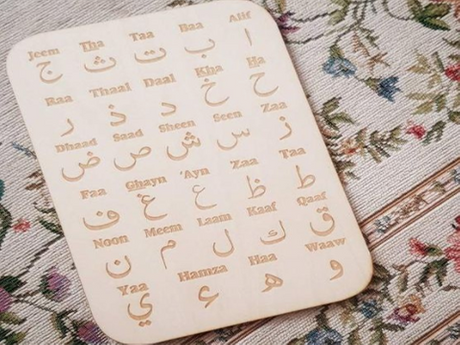 Alif Baa Taa Tha Jeem
ا ب ت ث ج
Ha Kha Daal Thaal Raa
ح خ د ذ ر
Zaa Seen Sheen Saad Dhaad
ز س ش ص ض
Taa Zaa 'Ayn Ghayn Faa
ط ظ ع غ ف
Qaaf Kaaf Laam Meem Noon
ق ك ل م ن
Waaw Haa Hamza Yaa
و ه ء ي